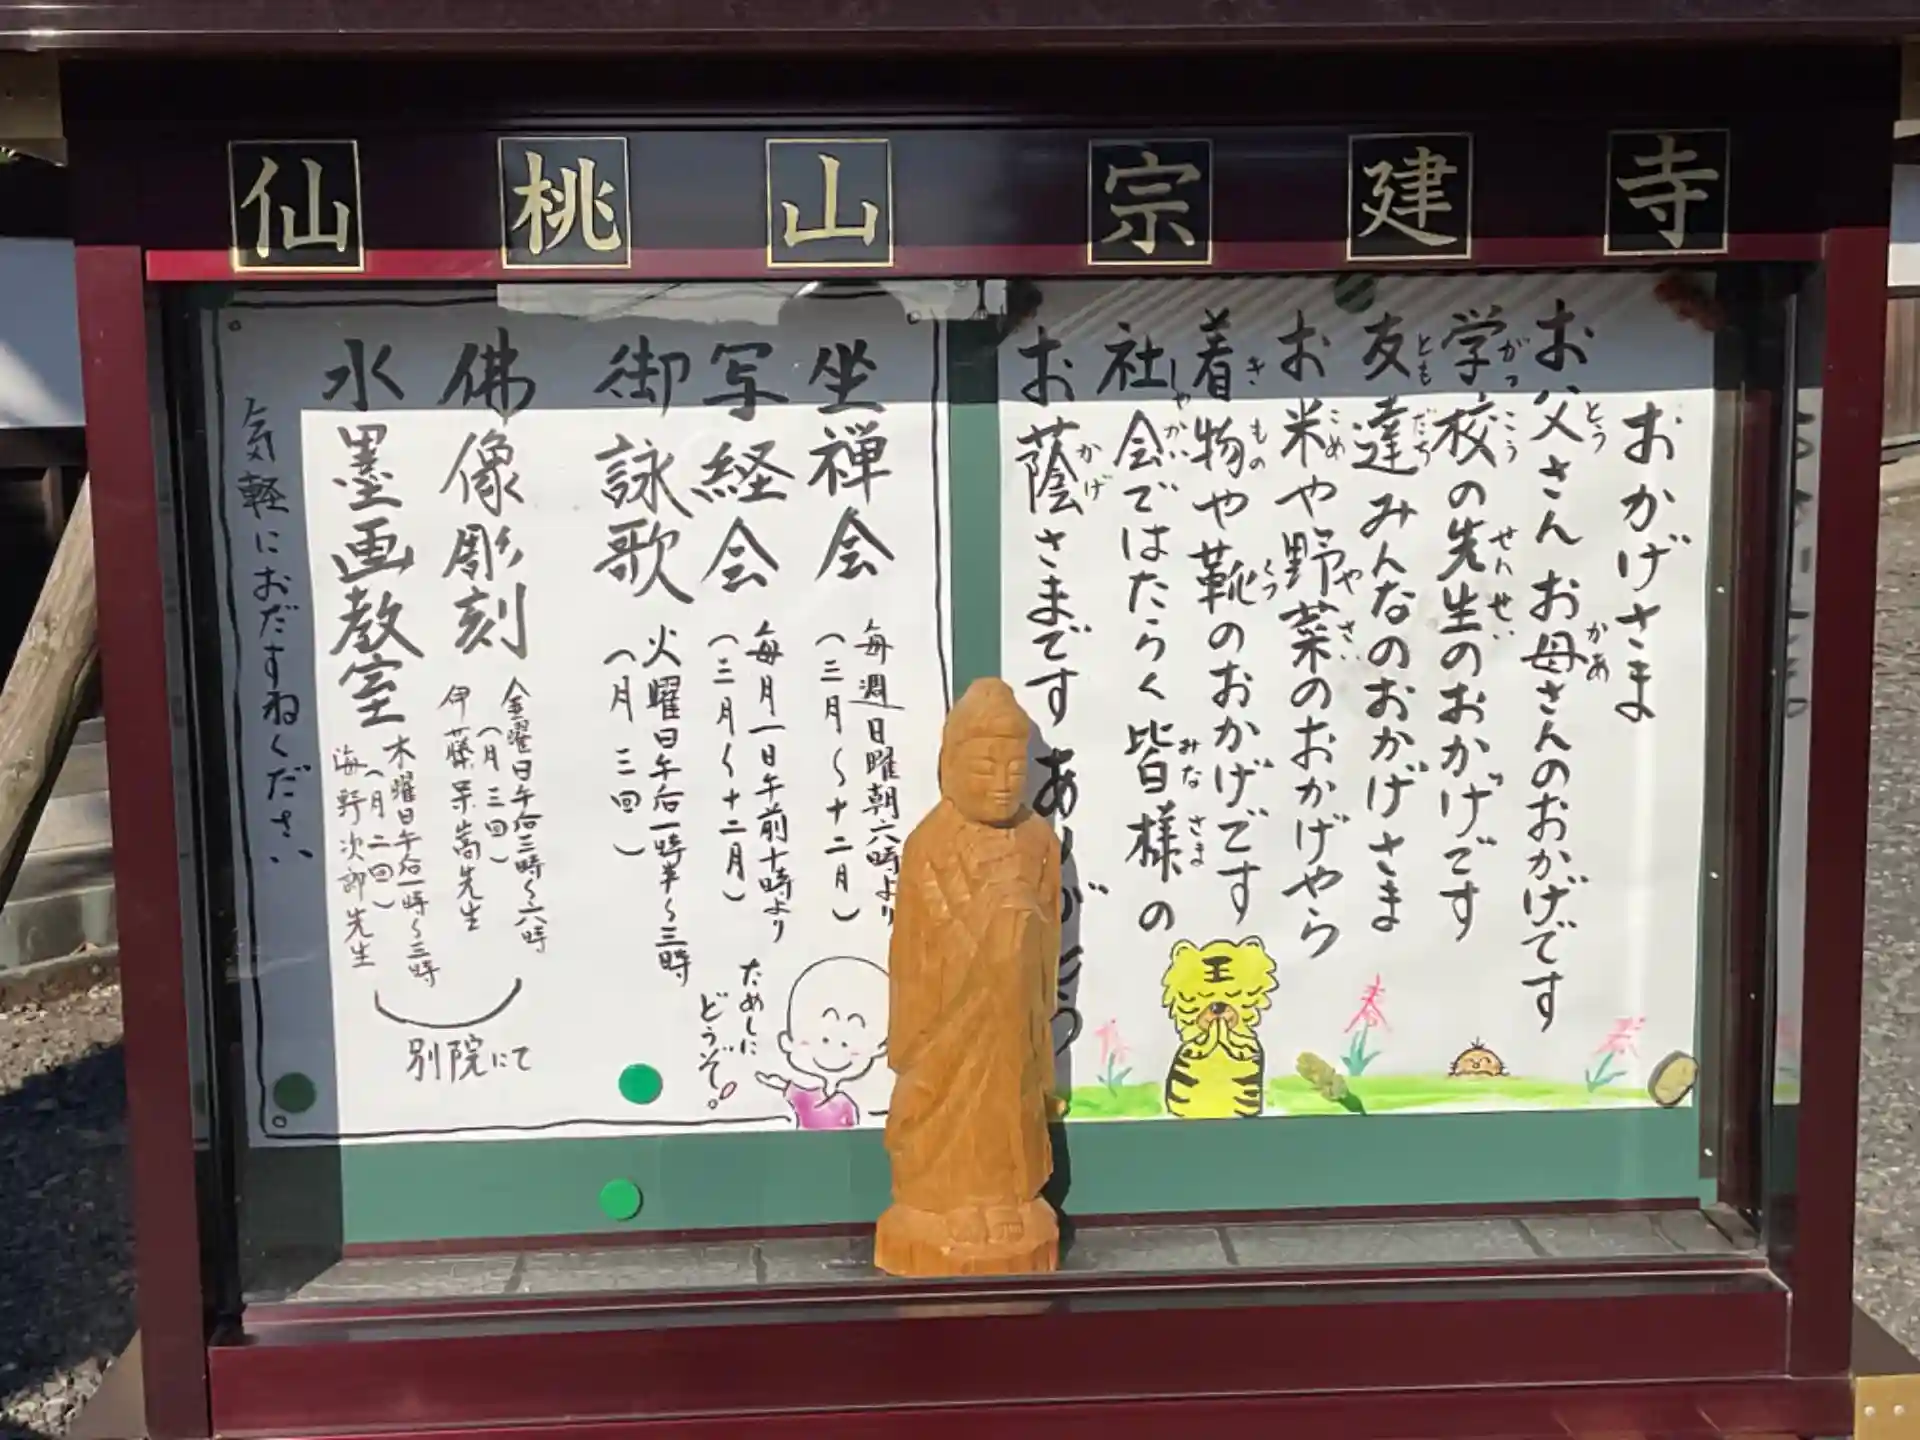 仙桃山宗建寺
おかげさま
お父さんお母さんのおかげです
学校の先生のおかげです
友達みんなのおかげさま
お米や野菜のおかげやら
着物や靴のおかげです
社会ではたらく皆様の
お蔭さまです
とう
かあ
がっこう
せんせい
ともだち
こめ
やさい
きもの
くつ
しゃかい
みなさま
かげ
王
春
坐禅会
毎週日曜朝六時より
(三月〜十二月)
写経会
毎月一日午前十時より
(三月〜十二月)
御詠歌
火曜日午后一時半〜三時
(月三回)
佛像彫刻
金曜日午后三時〜六時
(月三回)
水墨画教室
木曜日午后一時〜三時
(月二回)
海野次郎先生
別院にて
気軽におだすねください
ためしに
どうぞ!